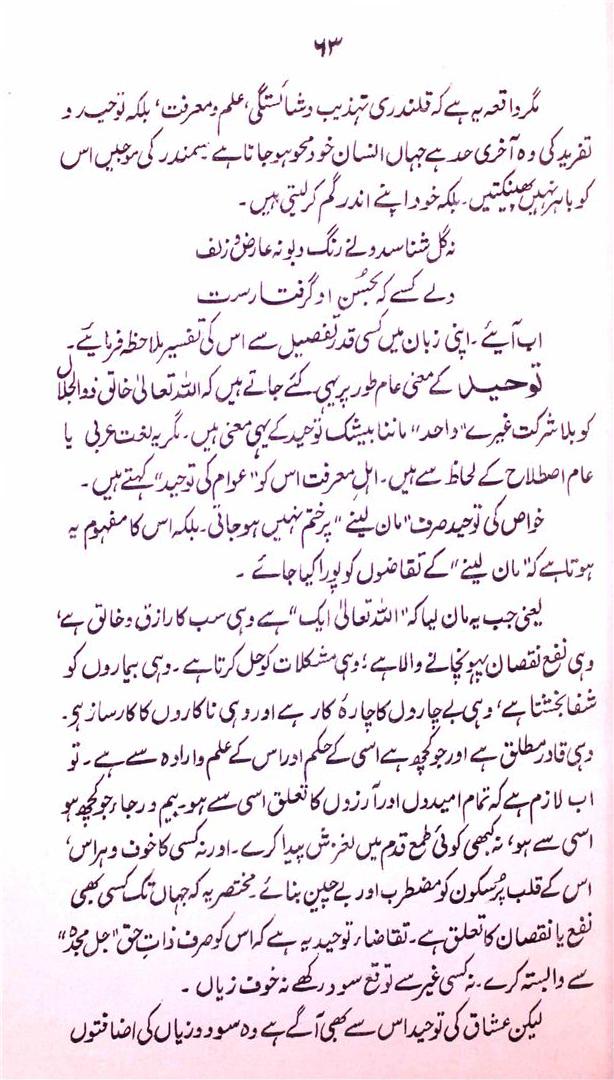 ۶۳
مگر واقعہ یہ ہے کہ قلندری تہذیب و شائستگی، علم و معرفت، بلکہ توحید و
تفرید کی وہ آخری حد ہے جہاں انسان خود محو ہو جاتا ہے سمندر کی موجیں اس
کو باہر نہیں پھینکتیں۔ بلکہ خود اپنے اندر گم کر لیتی ہیں۔
نہ گل شناسد و نے رنگ و بو نہ عارض و زلف
دلے کسے کہ بحُسن او گرفتار ست
اب آیئے۔ اپنی زبان میں کسی قدر تفصیل سے اس کی تفسیر ملاحظہ فرمایئے۔
توحید کے معنی عام طور پر یہی کئے جاتے ہیں کہ اللہ تعالیٰ خالق ذوالجلال
کو بلا شرکت غیرے "واحد" ماننا بیشک توحید کے یہی معنی ہیں۔ مگر یہ لغت عربی یا
عام اصطلاح کے لحاظ سے ہیں۔ اہلِ معرفت اس کو "عوام کی توحید" کہتے ہیں۔
خواص کی توحید صرف "مان لینے" پر ختم نہیں ہو جاتی۔ بلکہ اس کا مفہوم یہ
ہوتا ہے کہ "مان لینے" کے تقاضوں کو پورا کیا جائے۔
یعنی جب یہ مان لیا کہ "اللہ تعالیٰ ایک" ہے وہی سب کا رازق و خالق ہے،
وہی نفع نقصان پہونچانے والا ہے؛ وہی مشکلات کو حل کرتا ہے۔ وہی بیماروں کو
شفا بخشتا ہے، وہی بے چاروں کا چارۂ کار ہے اور وہی ناکاروں کا کارساز ہی۔
وہی قادر مطلق ہے اور جو کچھ ہے اسی کے حکم اور اس کے علم و ارادہ سے ہے۔ تو
اب لازم ہے کہ تمام امیدوں اور آرزوں کا تعلق اسی سے ہو۔ بیم و رجاء جو کچھ ہو
اسی سے ہو، نہ کبھی کوئی طمع قدم میں لغزش پیدا کرے۔ اور نہ کسی کا خوف و ہراس،
اس کے قلب پُر سکون کو مضطرب اور بے چین بنائے۔ مختصر یہ کہ جہاں تک کسی بھی
نفع یا نقصان کا تعلق ہے۔ تقاضاء توحید یہ ہے کہ اس کو صرف ذاتِ حق "جل مجدہ"
سے وابستہ کرے۔ نہ کسی غیر سے توقع سود رکھے نہ خوف زیاں۔
لیکن عشاق کی توحید اس سے بھی آگے ہے وہ سود و زیاں کی اضافتوں